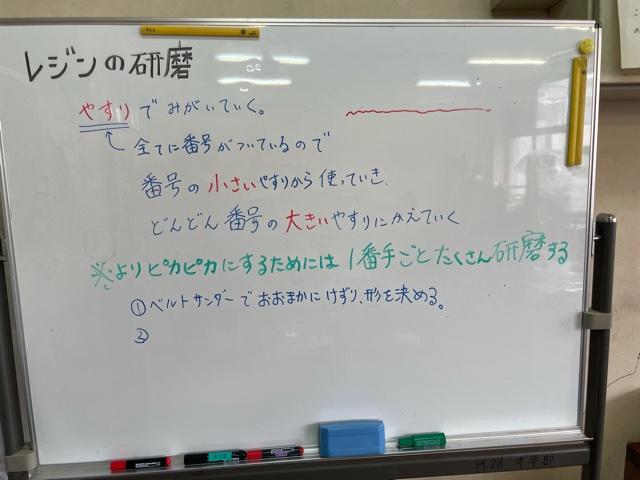 レジンの研磨
やすりでみがいていく。
全てに番号がついているので
番号の小さいやすりから使っていき、
どんどん番号の大きいやすりにかえていく
※よりピカピカにするためには1番手ごとたくさん研磨する
①ベルトサンダーでおおまかにけずり、形を決める。
②
H26 中学部